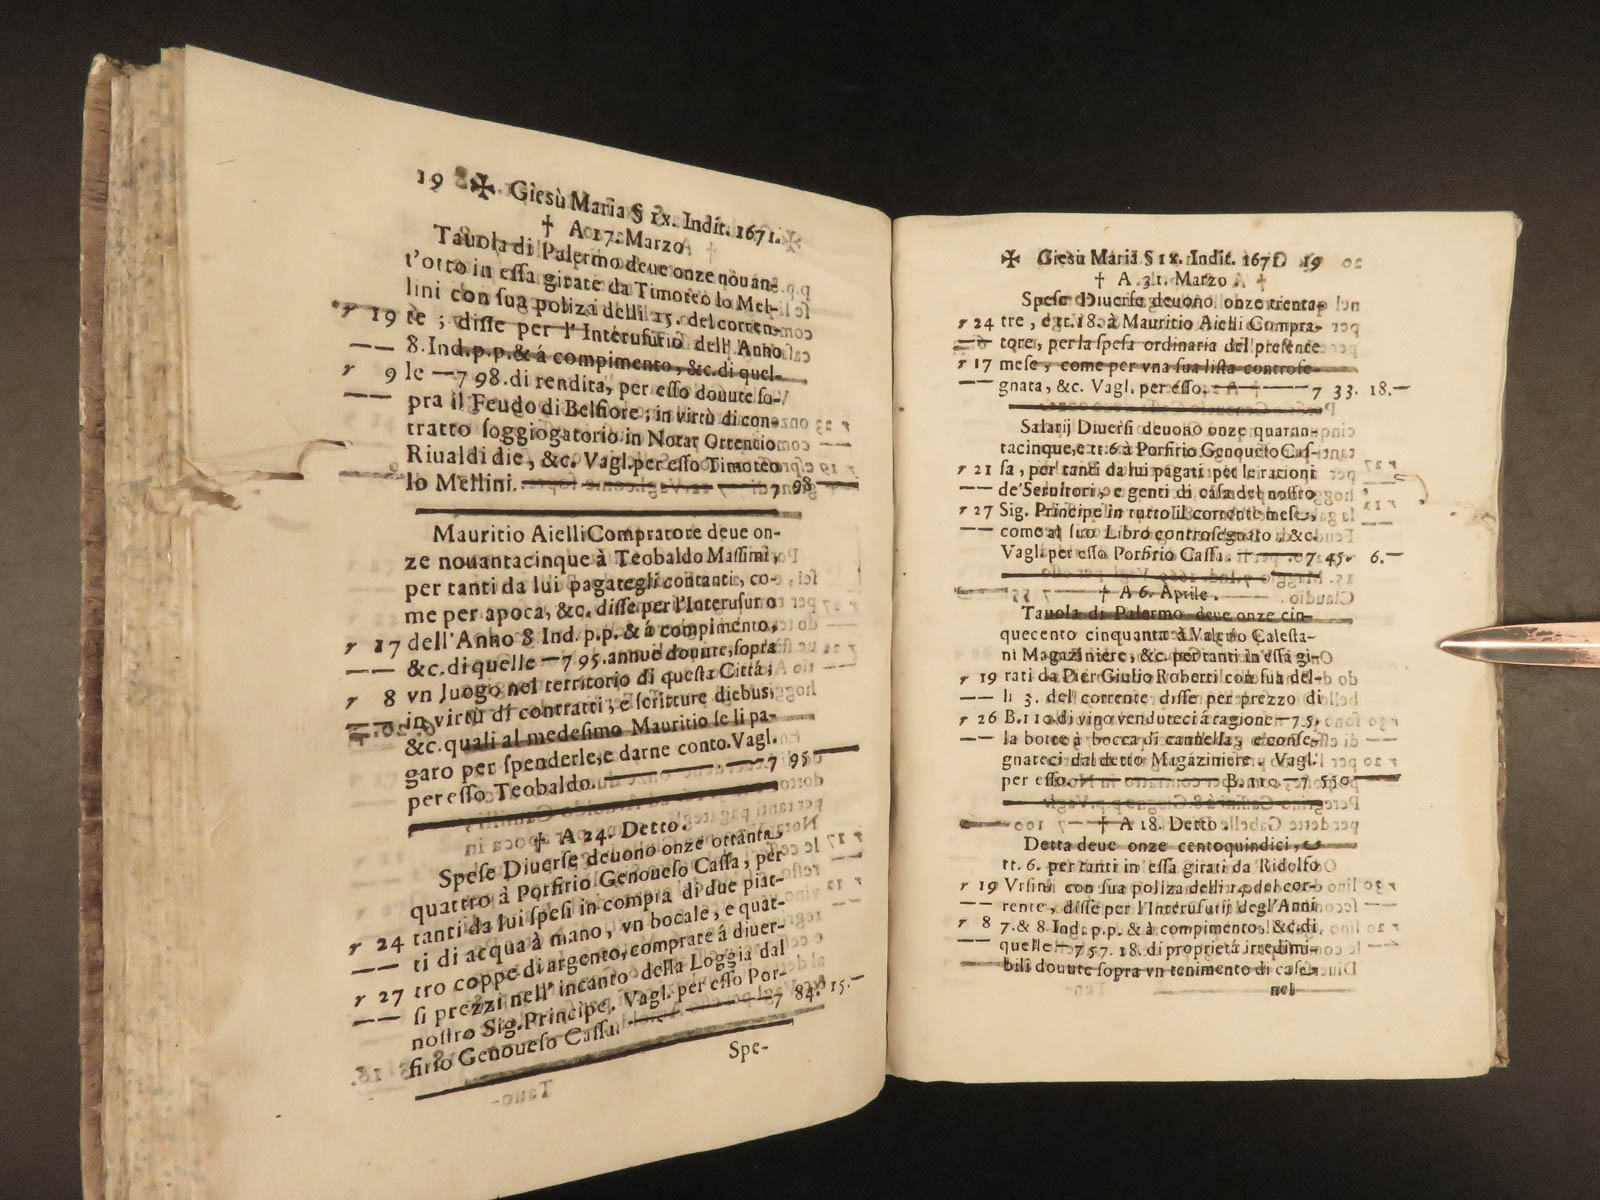 19 ✠ Giesù Maria § IX. Indit. 1671.
† A 17. Marzo
Tauola di Palermo deue onze nouan-
t'otto in essa girate da Timoteo lo Mel-
lini con sua poliza delli 15. del corren-
r 19 te ; disse per l'Interusurio dell' Anno
—— 8. Ind. p.p. & á compimento, &c. di quel-
r 9 le —7 98. di rendita, per esso douute so-
—— pra il Feudo di Belfiore ; in virtù di con-
tratto soggiogatorio in Notar Ortentio
Riualdi die , &c. Vagl. per esso Timoteo
lo Mellini. — 7 98 —
Mauritio Aielli Compratore deue on-
ze nouantacinque à Teobaldo Massimi,
per tanti da lui pagategli contanti, co-
me per apoca, &c. disse per l'Interusurio
r 17 dell'Anno 8 Ind. p.p. & á compimento,
—— &c. di quelle —7 95. annue douute, sopra
r 8 vn luogo nel territorio di questa Città ;
—— in virtù di contratti, e scritture diebus,
&c. quali al medesimo Mauritio se li pa-
garo per spenderle, e darne conto. Vagl.
per esso Teobaldo. — 7 95 —
† A 24. Detto.
Spese Diuerse deuono onze ottanta
quattro â Porfirio Genoueso Cassa, per
r 24 tanti da lui spesi in compra di due piat-
—— ti di acqua à mano, vn bocale, e quat-
r 27 tro coppe di argento, comprate á diuer-
—— si prezzi nell' incanto della Loggia dal
nostro Sig. Principe. Vagl. per esso Por-
firio Genoueso Cassa. — 7 84. 15. —
Spe-
✠ Giesù Maria § IX. Indit. 1671. 19
† A 31. Marzo
Spese Diuerse deuono onze trenta-
r 24 tre , e tt. 18. à Mauritio Aielli Compra-
—— tore, per la spesa ordinaria del presente
r 17 mese, come per vna sua lista controse-
—— gnata, &c. Vagl. per esso. — 7 33. 18. —
Salarij Diuersi deuono onze quaran-
tacinque, e tt. 6 à Porfirio Genoueso Cas-
r 21 sa , per tanti da lui pagati per le rationi
—— de' Seruitori , e genti di casa del nostro
r 27 Sig. Principe in tutto il corrente mese,
—— come al suo Libro controsegnato . &c.
Vagl. per esso Porfirio Cassa. — 7 45. 6. —
† A 6. Aprile .
Tauola di Palermo deue onze cin-
quecento cinquanta à Valerio Calesta-
ni Magaziniere, &c. per tanti in essa gi-
r 19 rati da Pier Giulio Roberti con sua del-
—— li 3. del corrente disse per prezzo di
r 26 B. 110. di vino venduteci á ragione —7 5.
—— la botte à bocca di cannella, e conse-
gnateci dal detto Magaziniere . Vagl.
per esso. — B. 110. — 7 550 —
† A 18. Detto .
Detta deue onze centoquindici , e
tt. 6. per tanti in essa girati da Ridolfo
r 19 Vrsini con sua poliza delli 14. del cor-
—— rente , disse per l'Interusutij degl'Anni
r 8 7. & 8 Ind. p.p. & à compimento, &c. di
—— quelle —7 57. 18. di proprietá irredimi-
bili douute sopra vn tenimento di case
nel